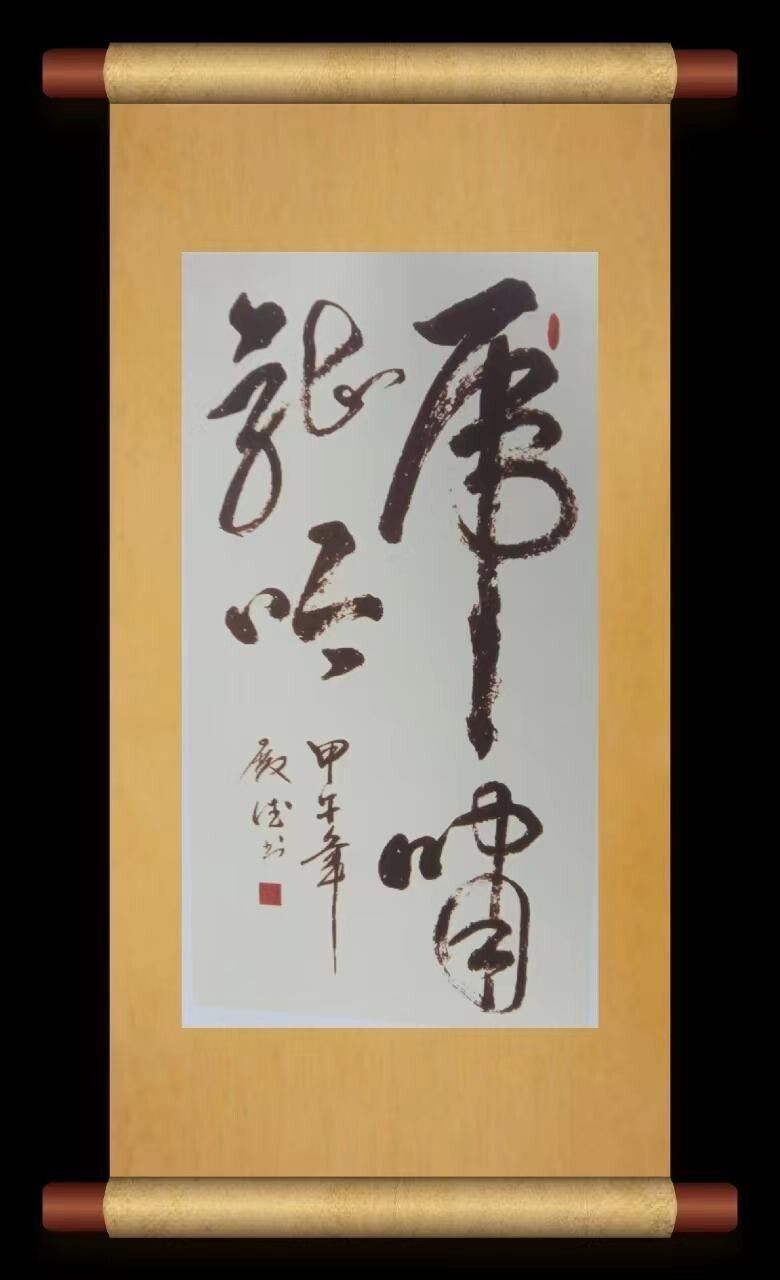 虎啸
龙吟
甲午年
德书